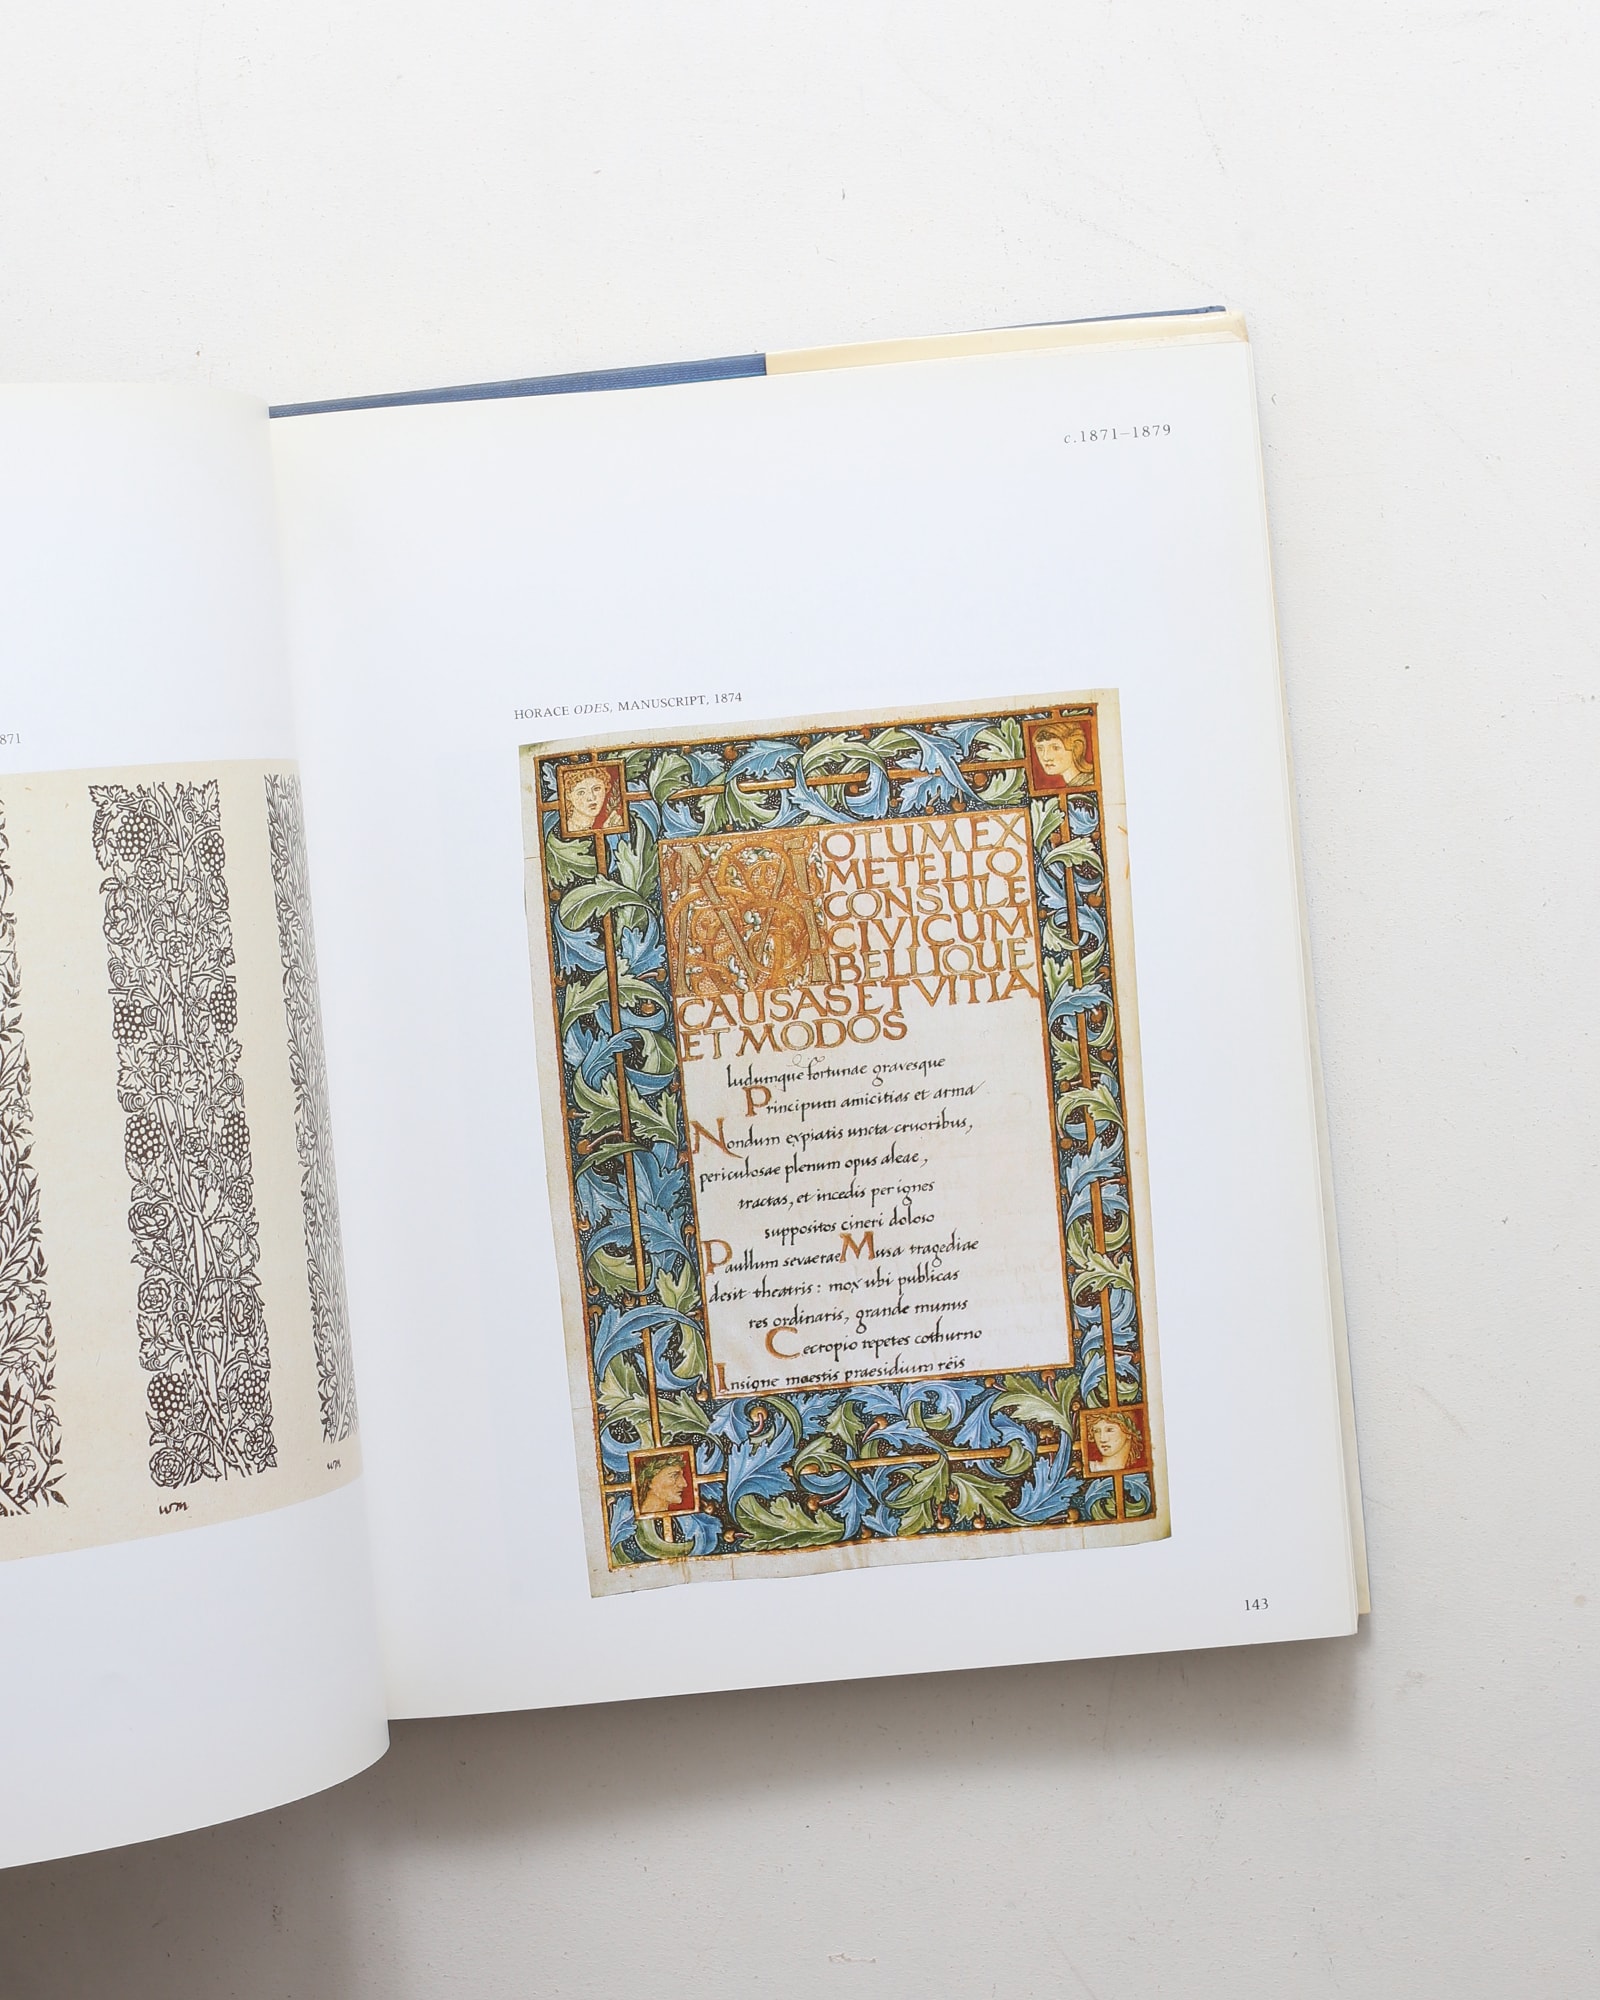 871
wm
wm
c.1871–1879
HORACE ODES, MANUSCRIPT, 1874
MOTUM EX
METELLO
CONSULE
CIVICUM
BELLIQUE
CAUSAS ET VITIA
ET MODOS
ludumque fortunae gravesque
Principum amicitias et arma
Nondum expiatis uncta cruoribus,
periculosae plenum opus aleae,
tractas, et incedis per ignes
suppositos cineri doloso
Paullum sevaerae Musa tragediae
desit theatris: mox ubi publicas
res ordinaris, grande munus
Cecropio repetes cothurno
Insigne maestis praesidium rëis
143